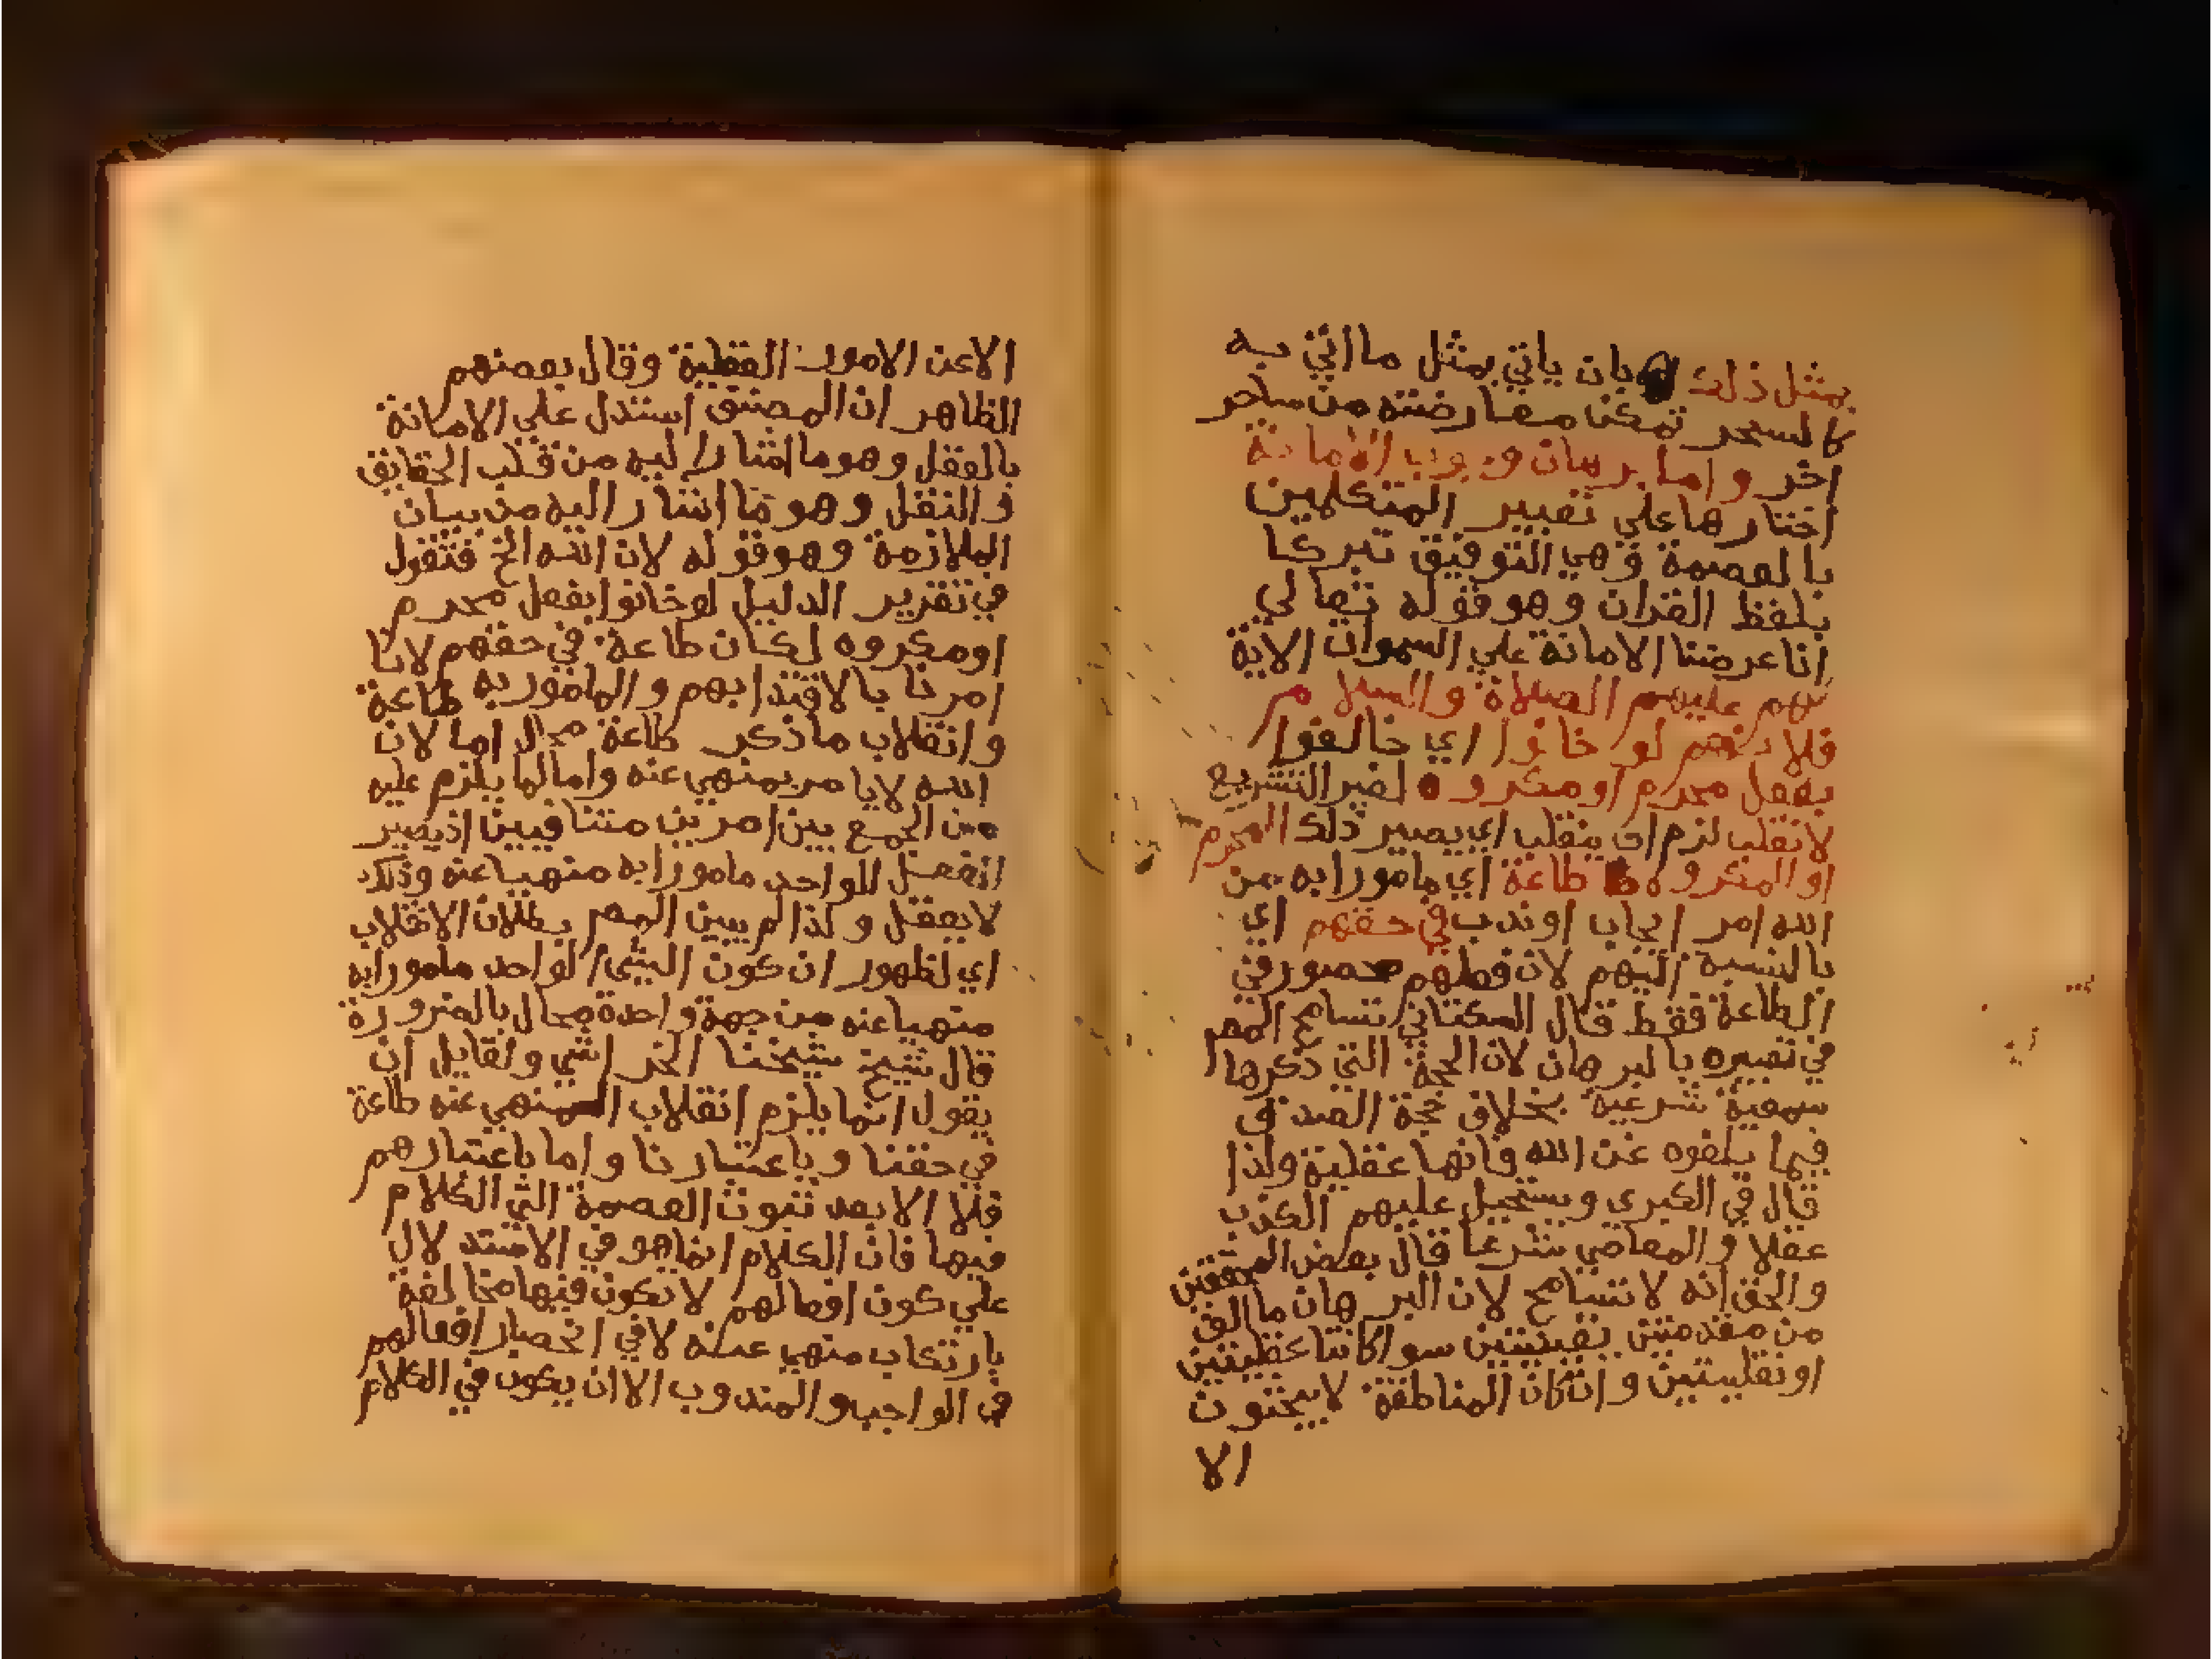 بمثل ذلك بان ياتي بمثل ما اتي به
كالسحر تمكن معارضته من ساحر
اخر واما برهان وجوب الامانة
اختارها علي تعبير المتكلمين
بالعصمة وهي التوفيق تبركا
بلفظ القران وهو قوله تعالي
انا عرضنا الامانة علي السموات الاية
لهم عليهم الصلاة والسلام
فلانهم لو خانوا اي خالفوا
بفعل محرم او مكروه لغير التشريع
لانقلب لزم ان ينقلب اي يصير ذلك المحرم
او المكروه طاعة اي مامورا به من
الله امر ايجاب او ندب في حقهم اي
بالنسبة اليهم لان فعلهم محصور في
الطاعة فقط قال السكتاني تسامح المص
في تعبيره بالبرهان لان الحجة التي ذكرها
سمعية شرعية بخلاف حجة الصدق
فيما يبلغوه عن الله فانها عقلية ولذا
قال في الكبري ويستحيل عليهم الكذب
عقلا والمعاصي شرعا قال بعض المحققين
والحق انه لا تسامح لان البرهان ما الف
من مقدمتين يقينيتين سوا كانتا عقليتين
او نقليتين وان كان المناطقة لا يبحثون
الا
الا عن الامور العقلية وقال بعضهم
الظاهر ان المصنف استدل علي الامانة
بالعقل وهو ما اشار اليه من قلب الحقايق
والنقل وهو ما اشار اليه من بيان
الملازمة وهو قوله لان الله الخ فتقول
في تقرير الدليل لو خانوا بفعل محرم
او مكروه لكان طاعة في حقهم لانا
امرنا بالاقتدا بهم والمامور به طاعة
وانقلاب ما ذكر طاعة محال اما لان
الله لا يامر بمنهي عنه واما لما يلزم عليه
من الجمع بين امرين متنافيين اذ يصير
الفعل الواحد مامورا به منهيا عنه وذلك
لا يعقل ولذا لم يبين المص بطلان الانقلاب
اي لظهور ان كون الشي الواحد مامورا به
منهيا عنه من جهة واحدة محال بالضرورة
قال شيخ شيخنا الخراشي ولقايل ان
يقول انما يلزم انقلاب المنهي عنه طاعة
في حقنا وباعتبارنا واما باعتبارهم
فلا الا بعد ثبوت العصمة التي الكلام
فيها فان الكلام انما هو في الاستدلال
علي كون افعالهم لا تكون فيها مخالفة
بارتكاب منهي عنه لا في انحصار افعالهم
في الواجب والمندوب الا ان يكون في الكلام